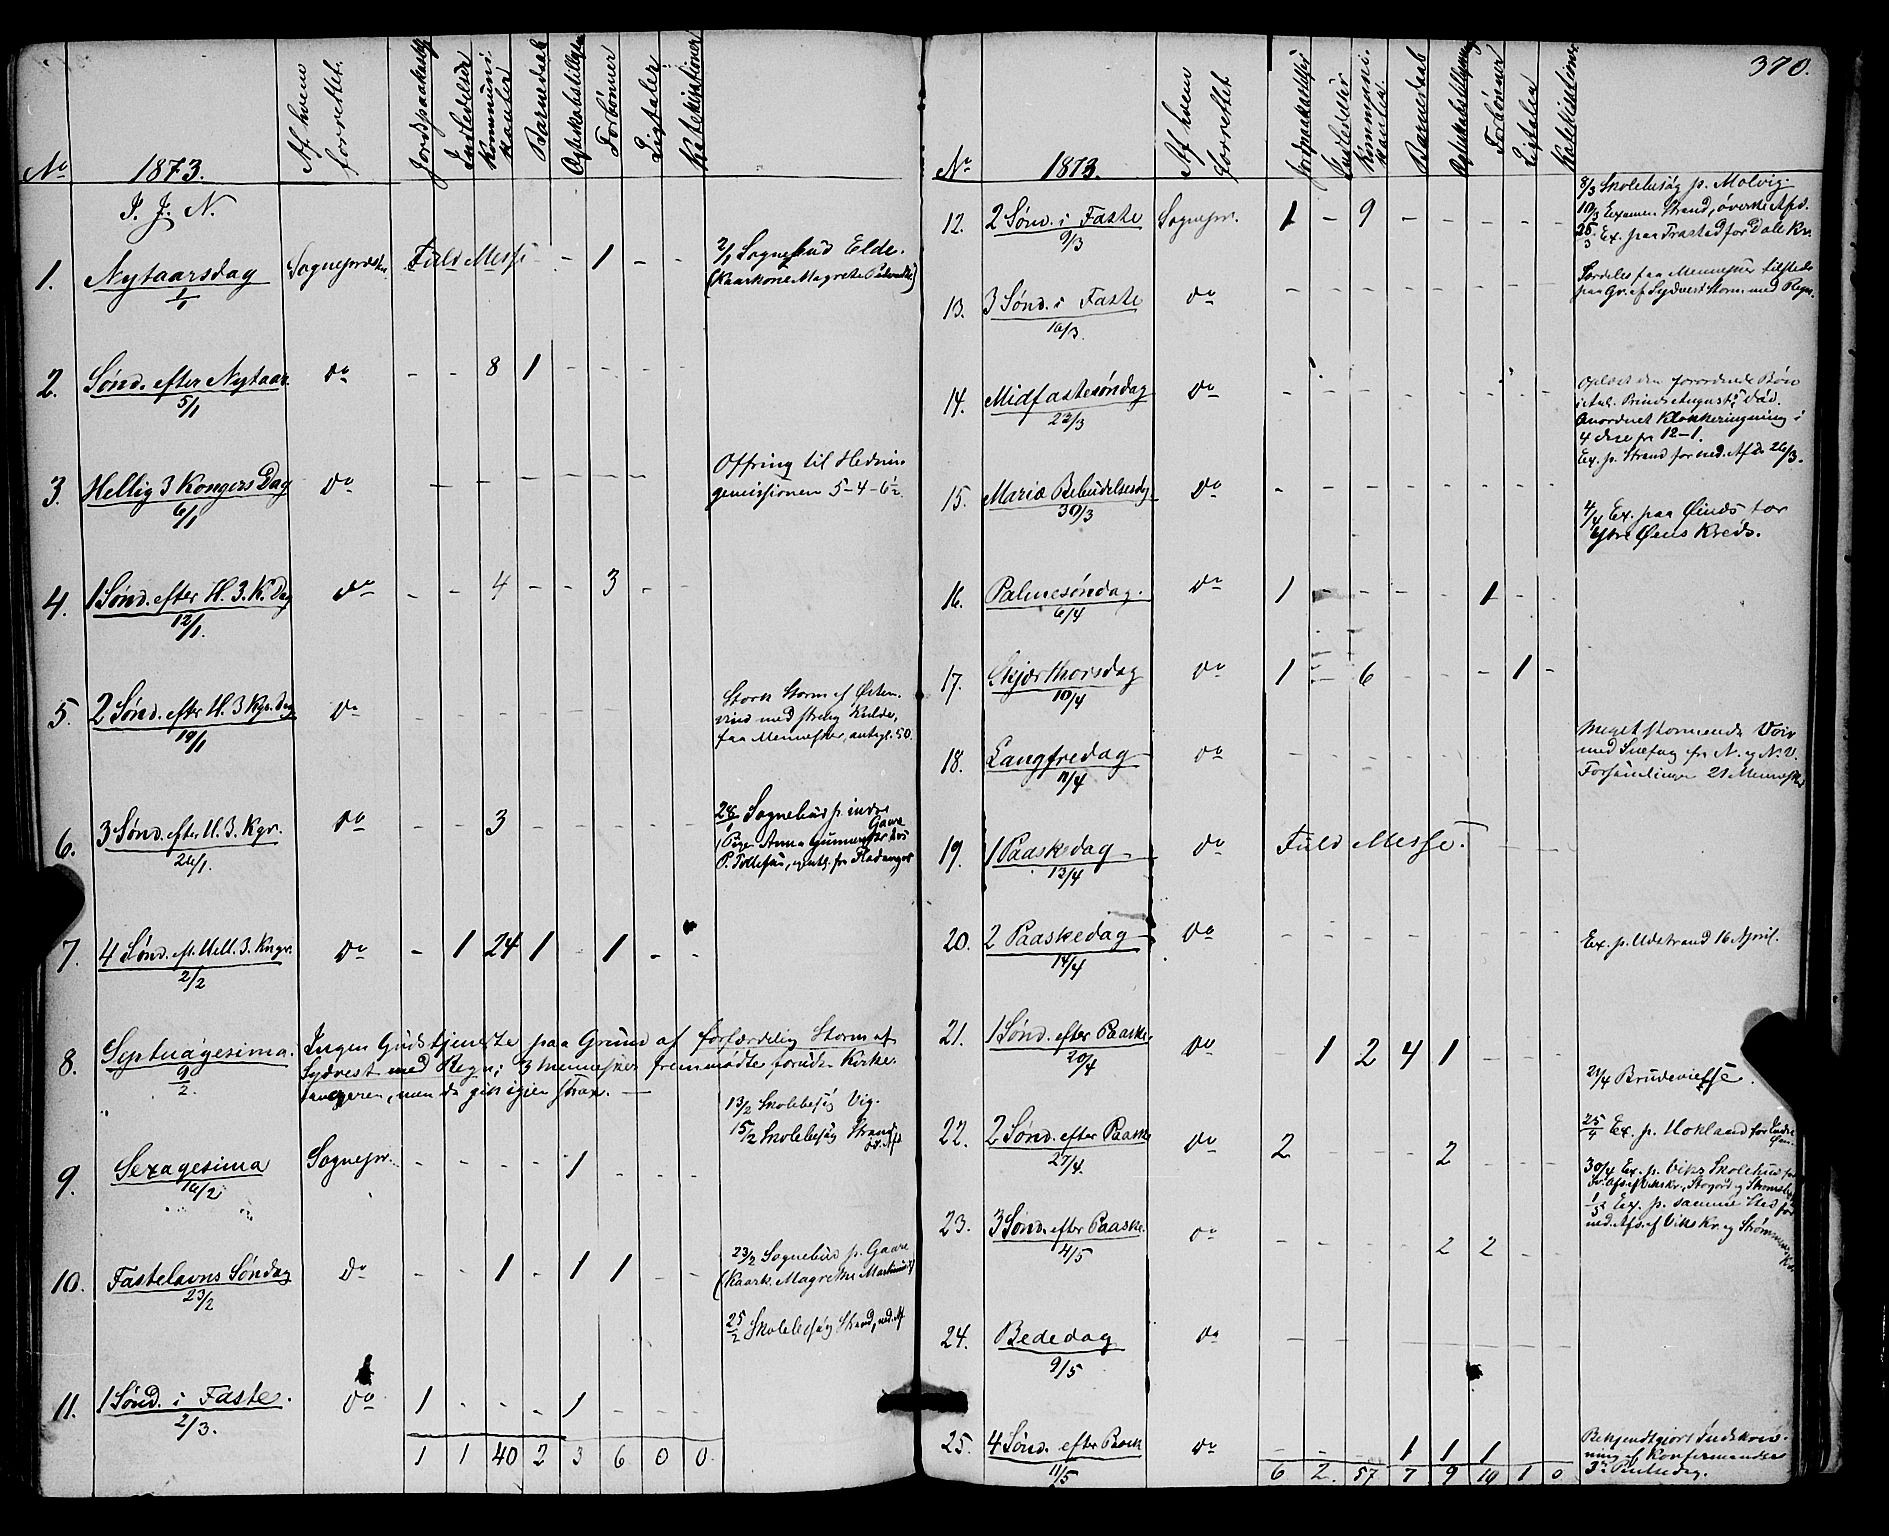 No 1873. Af hvem forrettet. Jordspaakastelse Indledelser Kommunikanter Barnedaab Ægteskabstillysn Forbønner Ligtaler Katekisationer
I. J. N.
1. Nytaarsdag 1/1 Sognepresten Fuld Messe - - 1 - - 2/1 Sognebud Elde.
(Kaarkone Magrete
2. Sønd. efter Nytaar. 5/1 do - - 8 1 - - - -
3. Hellig 3 Kongers Dag 6/1 do - - - - - - - Offring til Hednin-
gemissionen 5-4-6½.
4. 1 Sønd. efter H. 3. K. Dag 12/1. do - - 4 - - 3 - -
5. 2 Sønd. efter H. 3 Kgr. Dag 19/1 do - - - - - - - - Stærk Storm af Østen-
vind med streng Kulde,
faa Mennesker, antagl. 50.
6. 3 Sønd. efter H. 3. Kgr. 26/1. do - - 3 - - - - - 28/1 Sognebud p. indre Gaare
(Pige Anna
P. Tollefsen,
7. 4 Sønd. ef. Hell. 3. Kngr. 2/2 do - 1 24 1 - 1 - -
8. Septuagesima. 9/2. Ingen Gudstjeneste paa Grund af forfærdelig Storm af
Sydvest med Regn; 3 Mennesker fremmødte foruden Kirke-
sangeren, men de gik igjen strax. —
13/2 Skolebesøg Vig.
15/2 Skolebesøg Strand
øv. Afd
9. Sexagesima 16/2 Sognepr. - - - - 1 - - -
10. Fastelavns Søndag 23/2 do - - 1 - 1 1 - - 23/2 Sognebud p. Gaare
(Kaark. Magrethe
25/2 Skolebesøg Strand, ned. Af.
11. 1 Sønd. i Faste. 2/3. do 1 - - - 1 - - -
1 1 40 2 3 6 0 0
370.
No 1873. Af hvem forrettet Jordpaakastelse Indledelser Kommunikanter Barnedaab Ægteskabstillysning Forbønner Ligtaler Katekisationer
12. 2 Sønd. i Faste 9/3 Sognepr. 1 - 9 - - - - - 8/3 Skolebesøg p. Molvig.
10/3 Examen Strand, øverste Afd.
25/3 Ex. paa Trastad for Dale Kr.
13. 3 Sønd. i Faste 16/3 do - - - - - - - - Særdeles faa Mennesker tilstede
paa Gr. af Sydvest Storm med Regn.
14. Midfastesøndag 23/3 do - - - - - - - - Oplæst den forordnede Bøn
i Anl. Prinds Augusts Død.
Anordnet Klokkeringning i
4 Uger fr 12-1.
Ex. p. Strand for ned. Afd. 26/3.
15. Mariæ Bebudelsesdg. 30/3 do - - - - - - - - 4/4 Ex. paa Øinæs for
Ytre Øens Kreds.
16. Palmesøndag. 6/4 do 1 - - - - 1 - -
17. Skjærthorsdag 10/4 do 1 - 6 - - - 1 -
18. Langfredag 11/4 do - - - - - - - - Meget stormende Veir
med Snefog fr N. og N.V.
Forsamlingen 21 Mennesker
19. 1 Paaskedag 13/4 do Fuld Messe. - - -
20. 2 Paaskedag 14/4 do - - - - - - - - Ex. p. Utstrand 16 April.
21. 1 Sønd. efter Paaske. 20/4 do - 1 2 4 1 - - -
21/4 Brudevielse.
22. 2 Sønd. efter Paaske 27/4. do 2 - - - 2 - - - 25/4 Ex. p. Hokland for Indre
30/4 Ex. p. Viks Skolehus for
1/5 Ex. p. samme Sted for
ned. Afd. af Viks Kr. og Strømmens Kr.
23. 3 Sønd. efter Paaske. 4/5 do - - - - 2 2 - -
24. Bededag 9/5 do - - - - - - - -
25. 4 Sønd. efter Paask 11/5 do - - - 1 1 1 Bekjendtgjort Indskriv-
ning af Konfirmander
3die Pintsedag.
6 2. 57 7 9 10 1 0